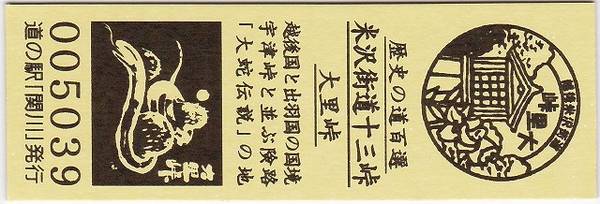 大里峠
歴史の道百選
米沢街道十三峠
大里峠
越後国と出羽国の国境
宇津峠と並ぶ険路
「大蛇伝説」の地
大里峠
005039
道の駅「関川」発行